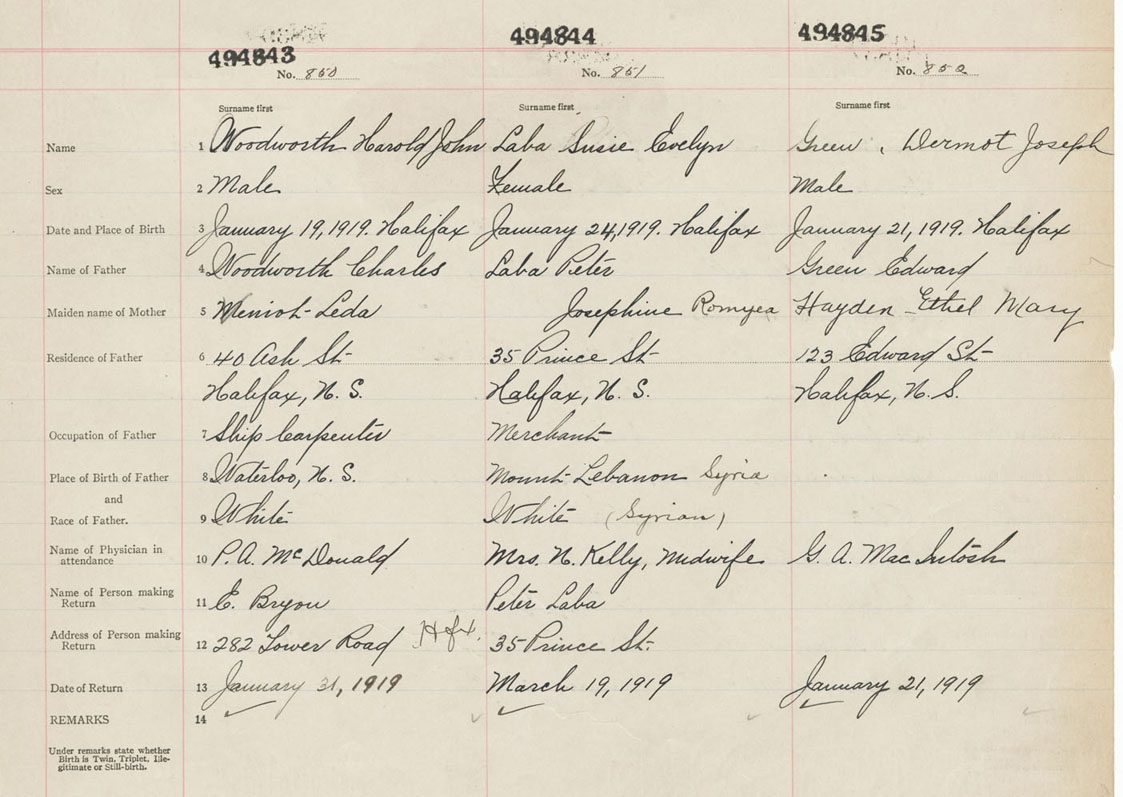 494843
494844
494845
No. 850
No. 851
No. 852
Surname first
Surname first
Surname first
Name 1 Woodworth Harold John Laba Susie Evelyn Green, Dermot Joseph
Sex 2 Male Female Male
Date and Place of Birth 3 January 19, 1919. Halifax January 24, 1919. Halifax January 21, 1919. Halifax
Name of Father 4 Woodworth Charles Laba Peter Green Edward
Maiden name of Mother 5 Leda Josephine Romyea Hayden Ethel Mary
Residence of Father 6 40 Ash St 35 Prince St 123 Edward St
Halifax, N. S. Halifax, N. S. Halifax, N. S.
Occupation of Father 7 Ship Carpenter Merchant
Place of Birth of Father 8 Waterloo, N. S. Mount Lebanon Syria
and
Race of Father. 9 White White (Syrian)
Name of Physician in attendance 10 P. A. McDonald Mrs. N. Kelly, Midwife G. A. MacIntosh
Name of Person making Return 11 E. Bryon Peter Laba
Address of Person making Return 12 282 Tower Road Hfx. 35 Prince St.
Date of Return 13 January 31, 1919 March 19, 1919 January 21, 1919
REMARKS 14
Under remarks state whether
Birth is Twin, Triplet, Ille-
gitimate or Still-birth.